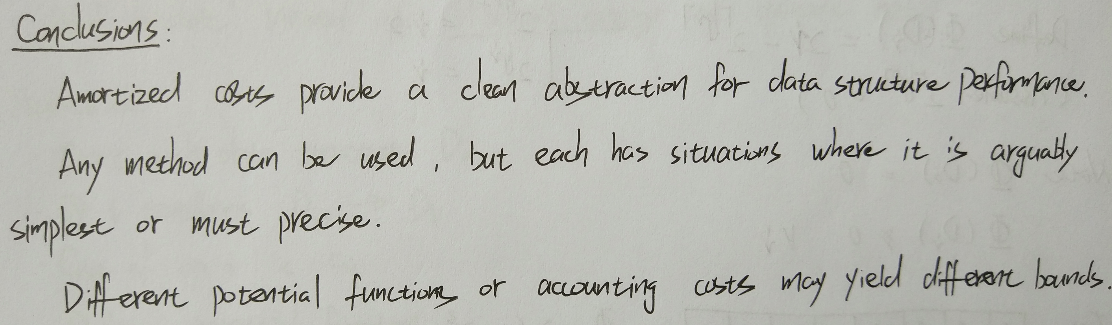 Conclusions:
Amortized costs provide a clean abstraction for data structure performance.
Any method can be used, but each has situations where it is arguably
simplest or must precise.
Different potential functions or accounting costs may yield different bounds.